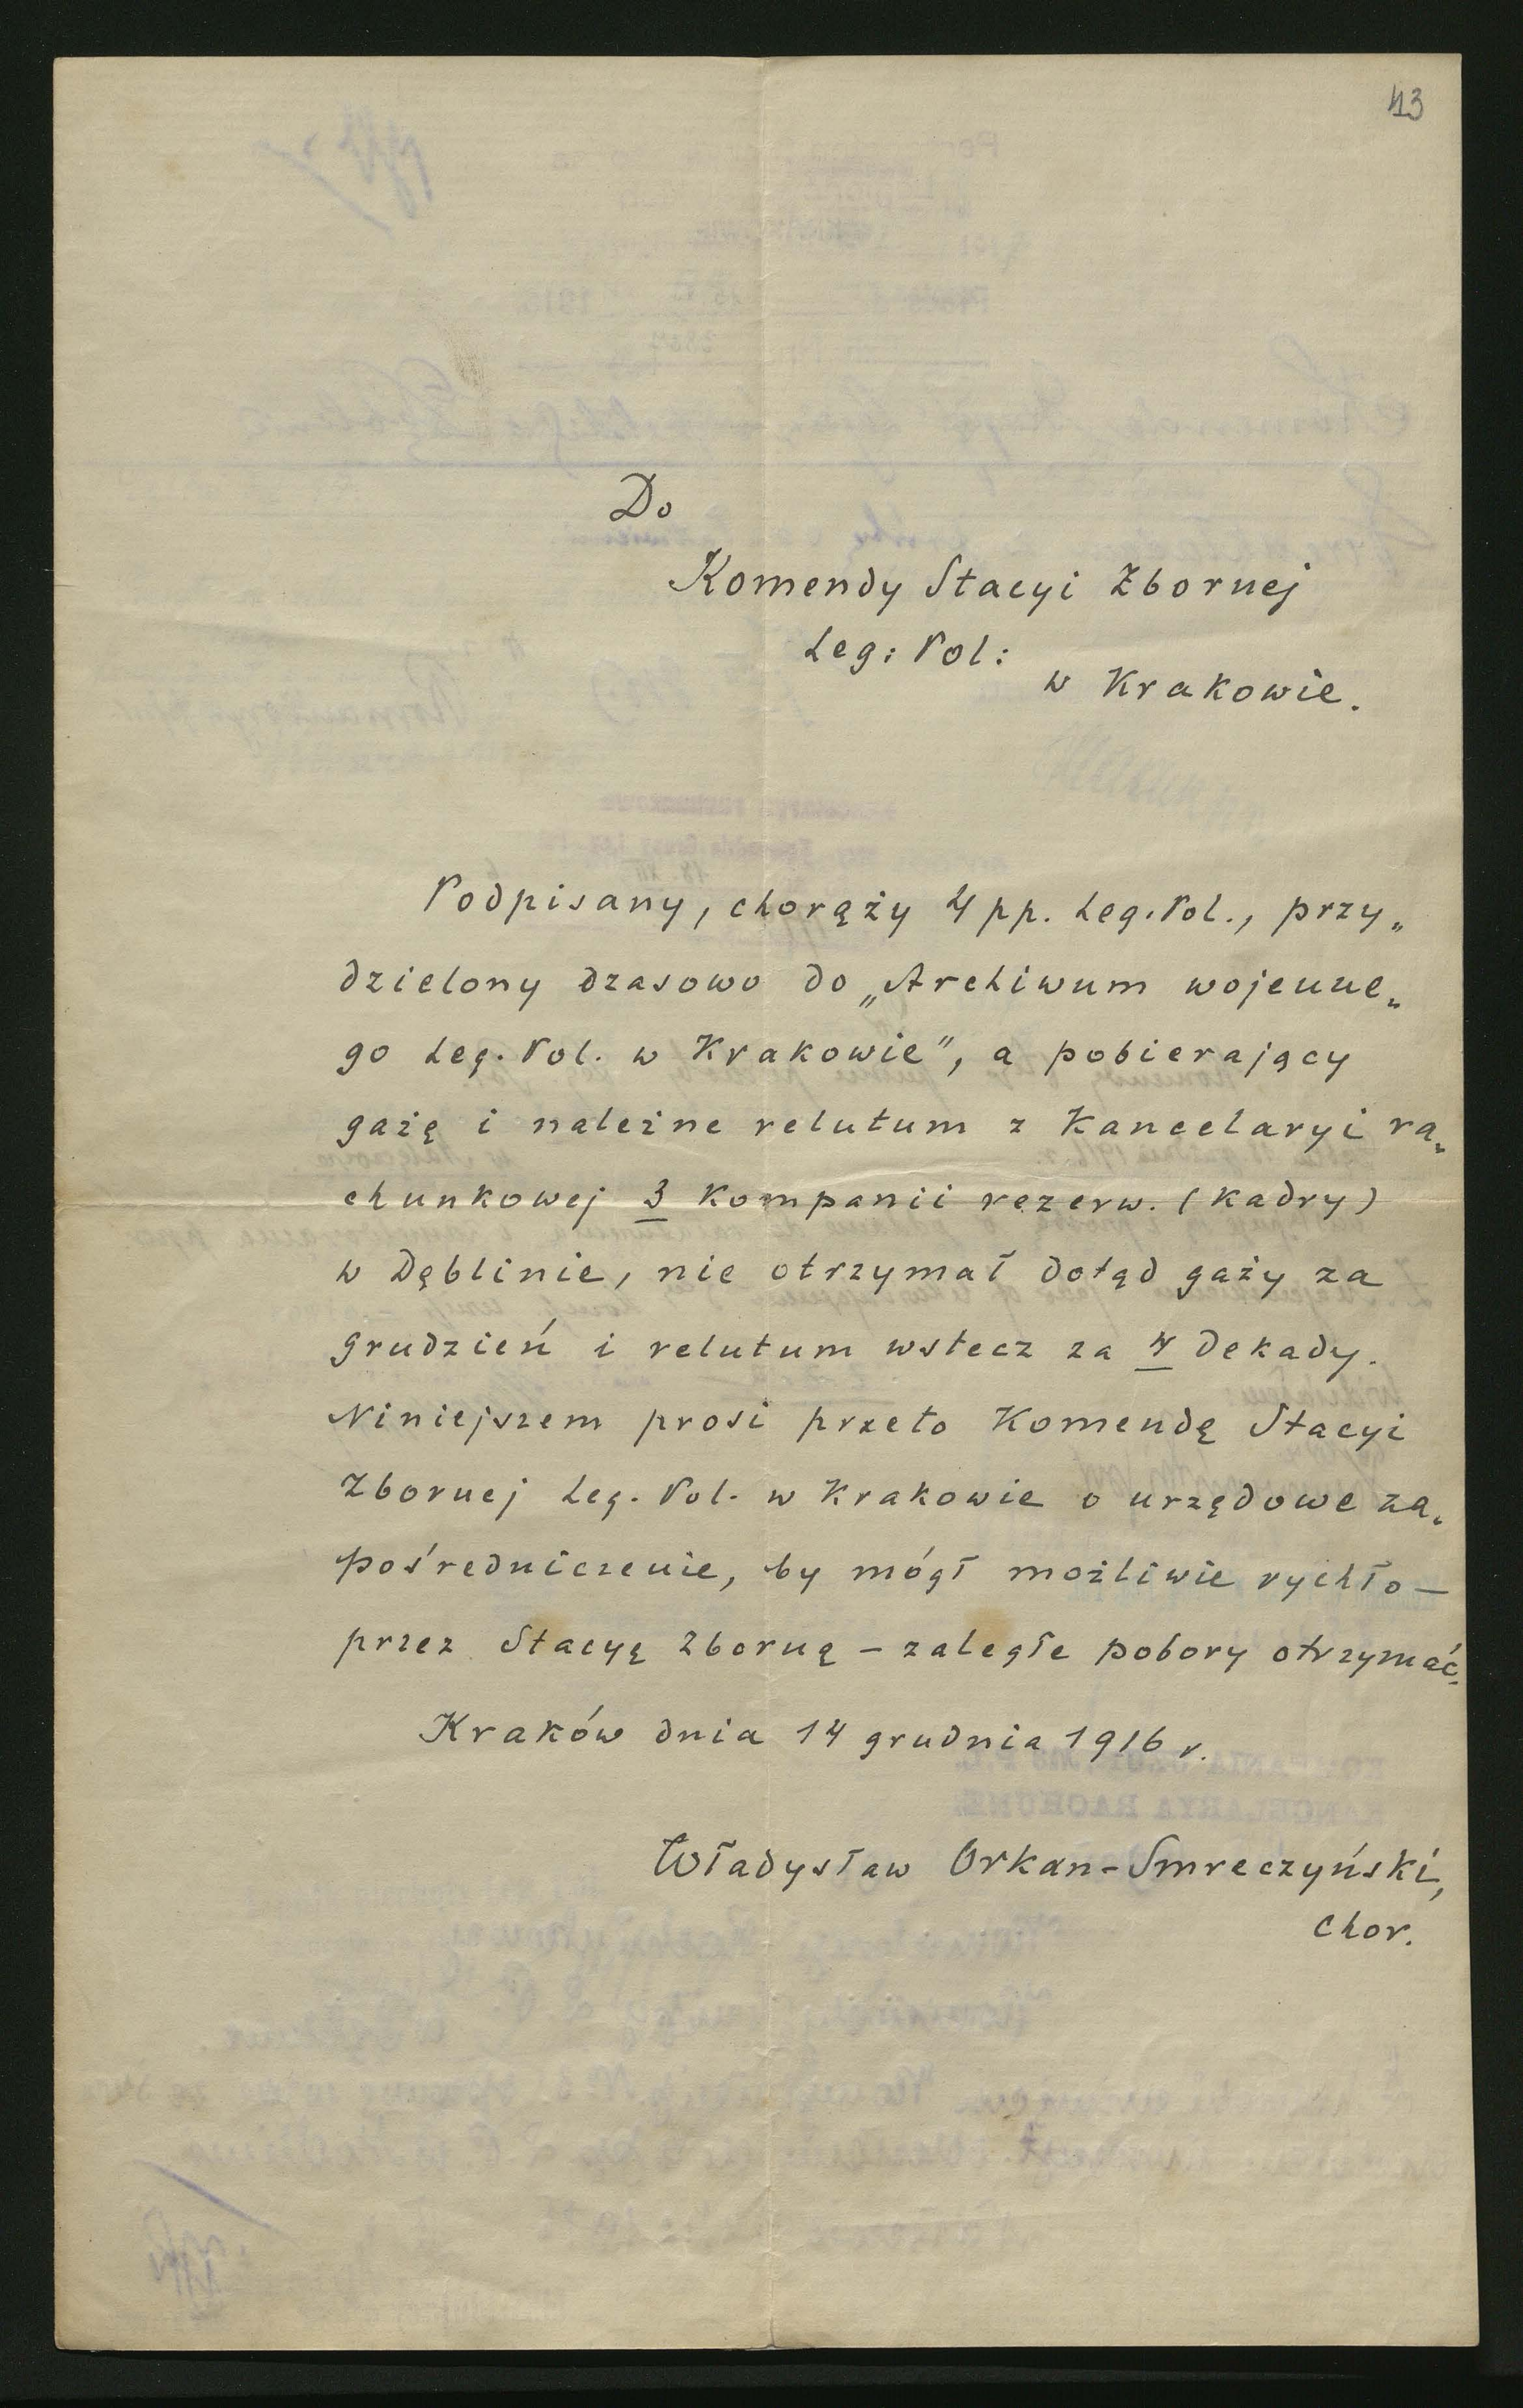 43
Do
Komendy Stacyi Zbornej
Leg: Pol:
w Krakowie.
Podpisany, chorąży 4 pp. Leg. Pol., przy„
dzielony czasowo do „Archiwum wojenne„
go Leg. Pol. w Krakowie”, a pobierający
gażę i należne relutum z Kancelaryi ra„
chunkowej 3 Kompanii rezerw. (kadry)
w Dęblinie, nie otrzymał dotąd gaży za
grudzień i relutum wstecz za 4 dekady.
Niniejszem prosi przeto Komendę Stacyi
Zbornej Leg. Pol. w Krakowie o urzędowe za„
pośredniczenie, by mógł możliwie rychło –
przez Stacyę Zborną – zaległe pobory otrzymać.
Kraków dnia 14 grudnia 1916 r.
Władysław Orkan-Smreczyński,
chor.